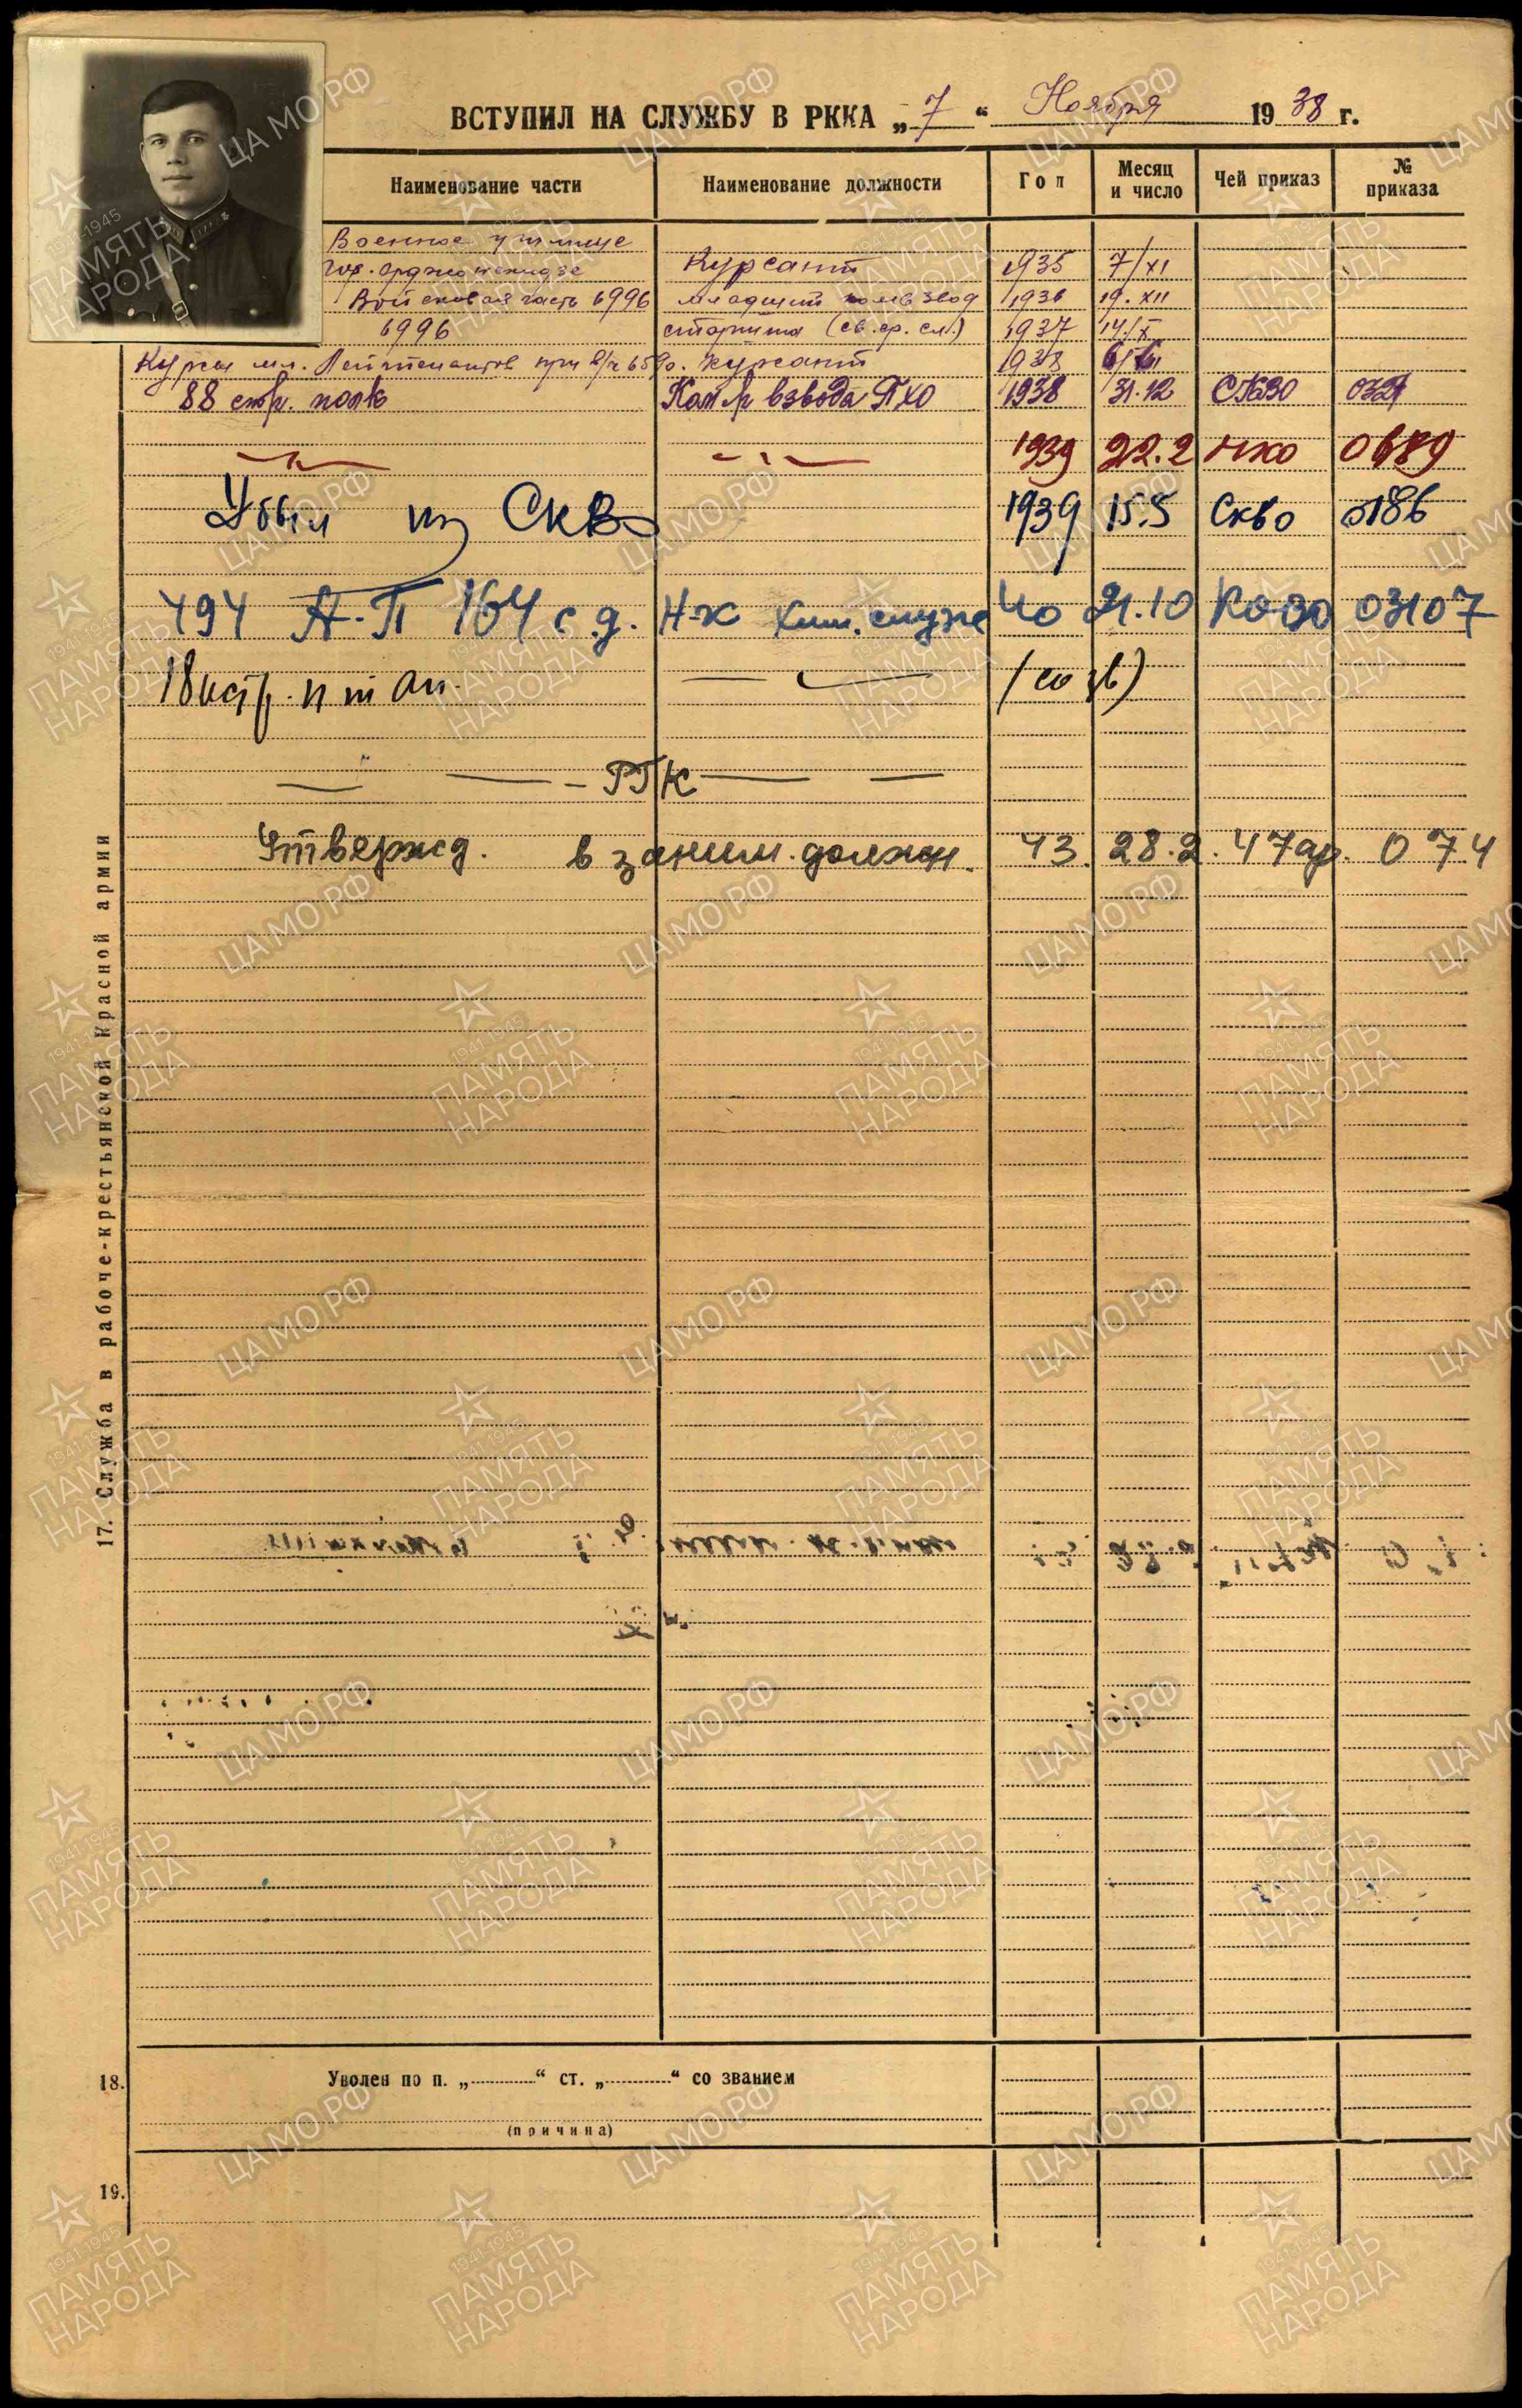 ВСТУПИЛ НА СЛУЖБУ В РККА „7“ Ноября 1938 г.
Наименование части Наименование должности Год Месяц и число Чей приказ № приказа
Военное училище
гор. Орджоникидзе Курсант 1935 7/XI
Войсковая часть 6996 младший комвзвод 1936 19.XII
6996 старшина (св. ср. сл.) 1937 14/X
Курсы мл. Лейтенантов при в/ч 6590. курсант 1938
88 стр. полк Ком-р взвода ПХО 1938 31.12 СКВО
—"— —"— 1939 22.2 НКО
Убыл из СКВО 1939 15.5 СКВО 0186
494 А-П 164 с.д. Н-к хим. служ 40 21.10 КОВО 03107
18 истр. п т ап. —"— (созв)
—"— — РГК — —
Утвержд. в заним. должн. 43. 28.2. 47 ар. 074
17. Служба в рабоче-крестьянской Красной армии
18. Уволен по п. „ “ ст. „ “ со званием
(причина)
19.
ЦАМО РФ
1941-1945
ПАМЯТЬ
НАРОДА